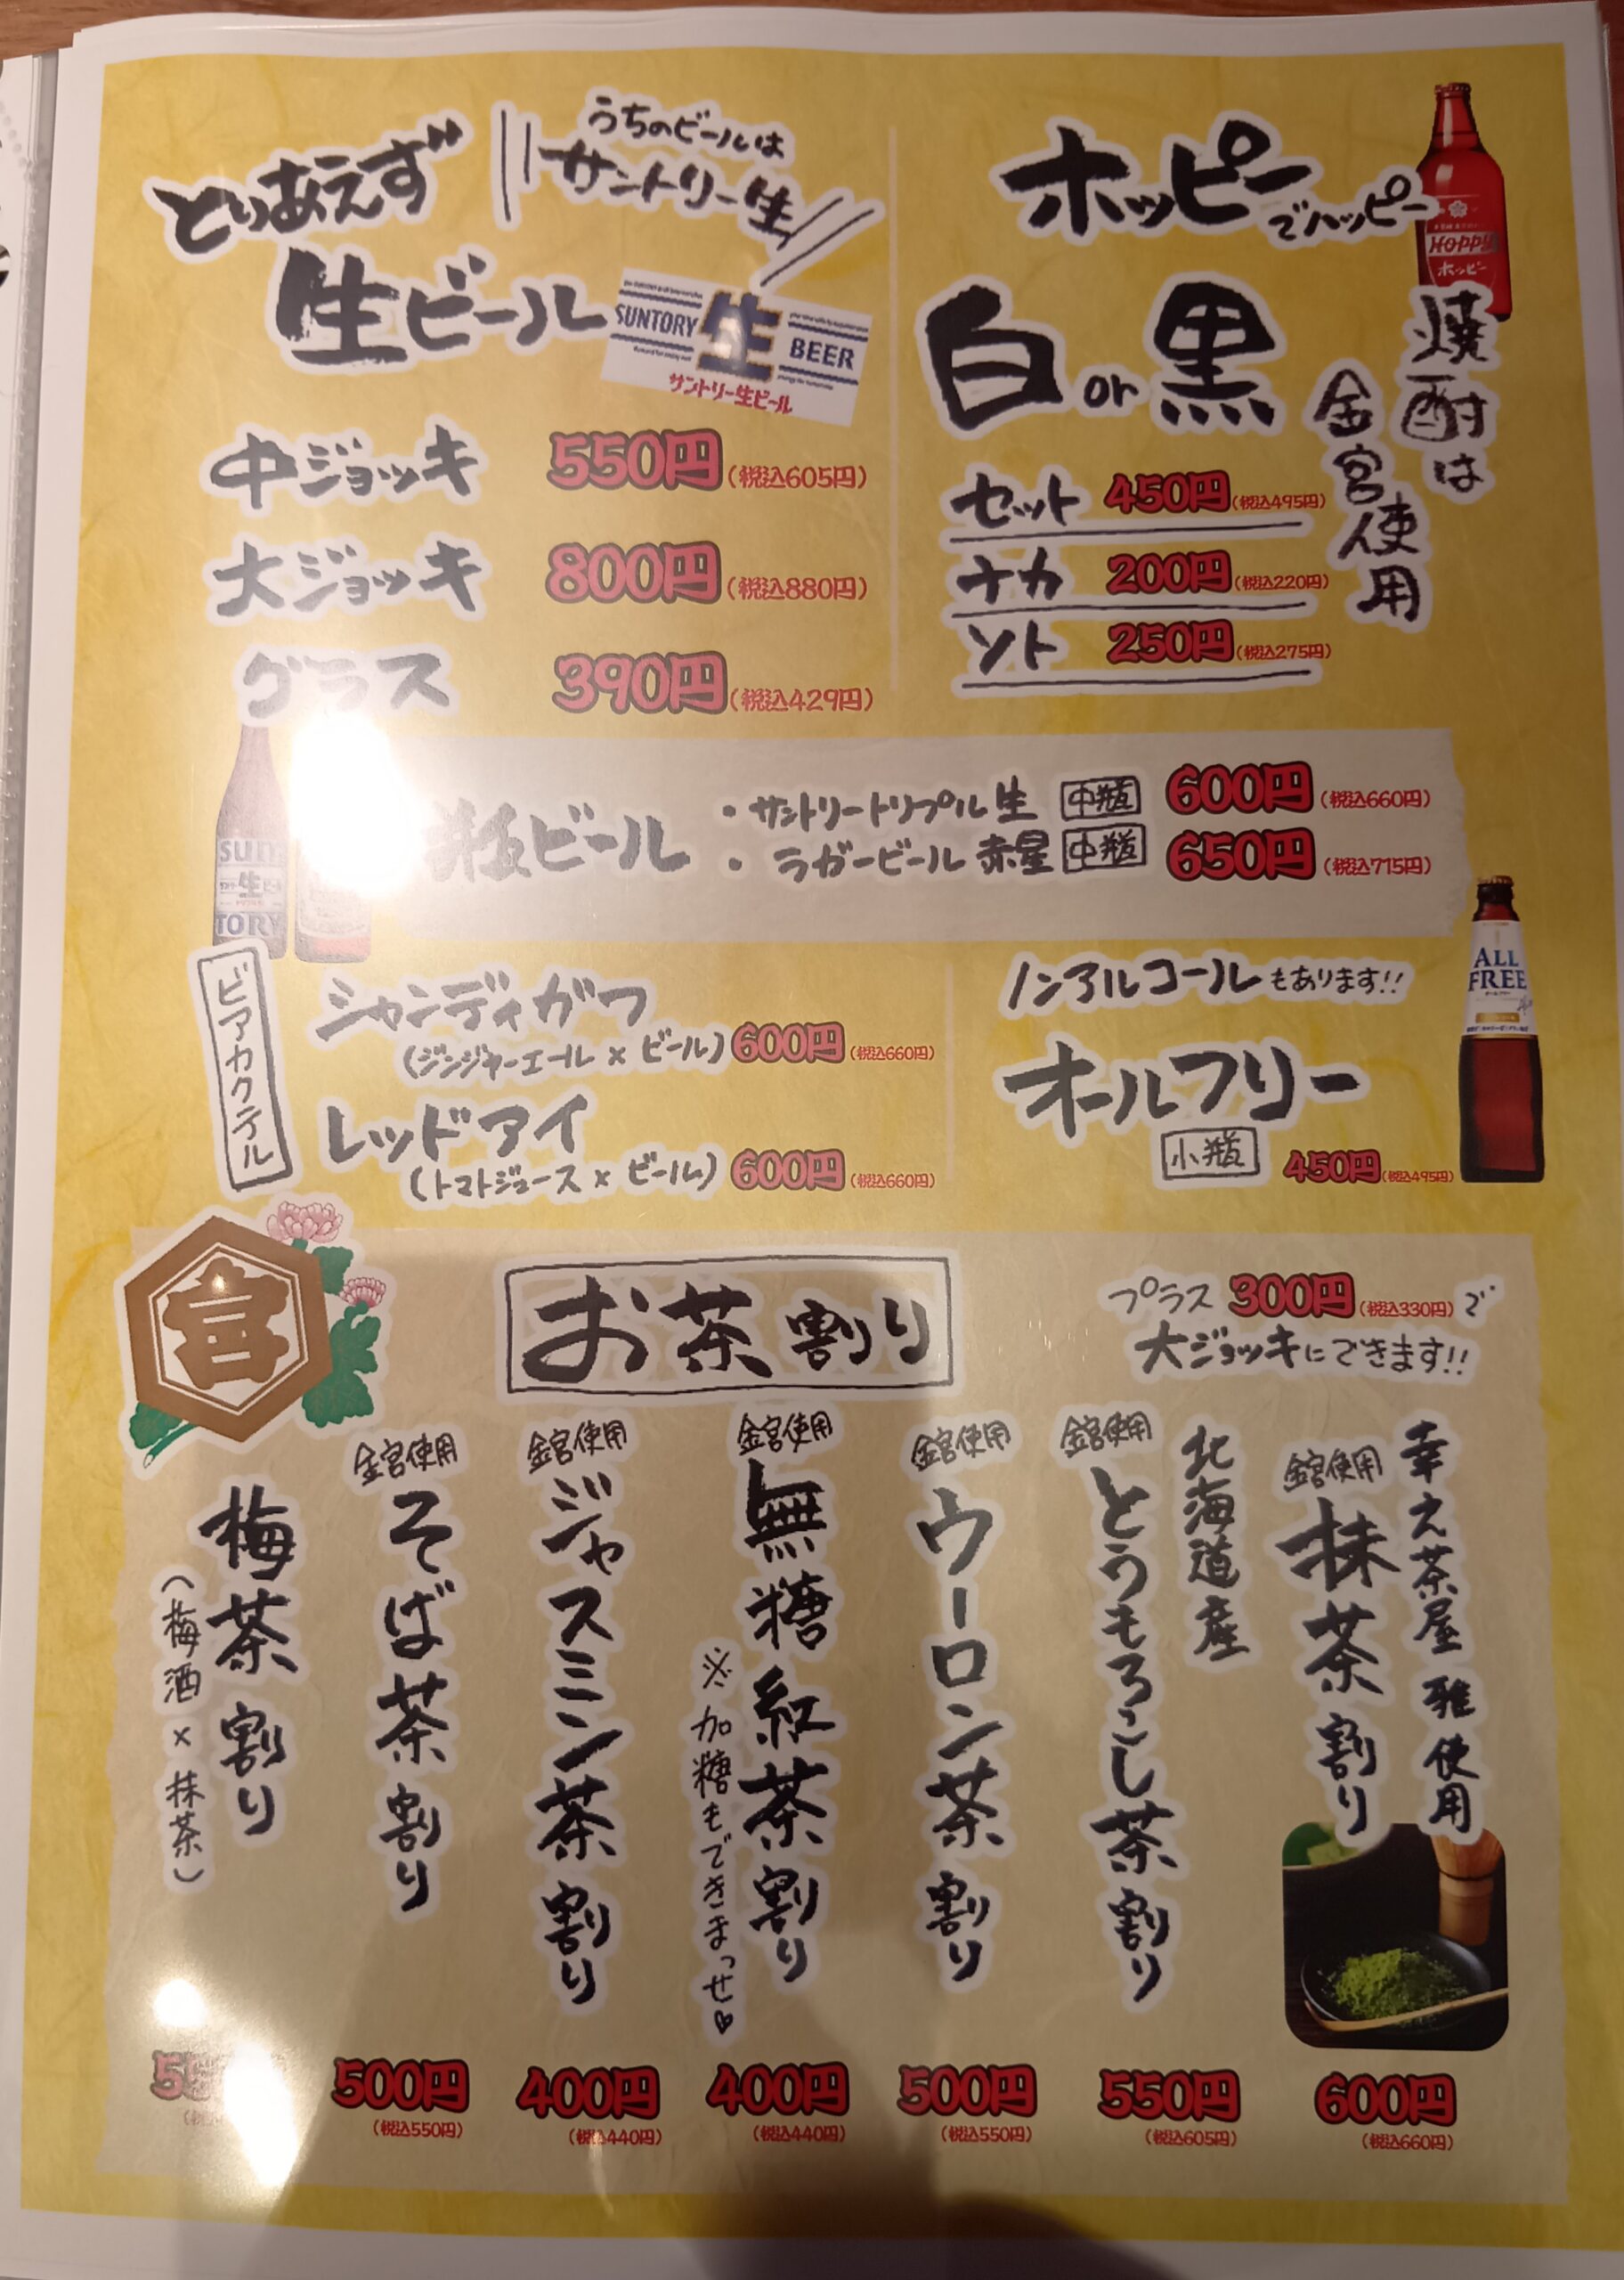 とりあえず
生ビール
うちのビールは
サントリー生
SUNTORY 生 BEER
サントリー生ビール
中ジョッキ 550円(税込605円)
大ジョッキ 800円(税込880円)
グラス 390円(税込429円)
ホッピーでハッピー
HOPPY
ホッピー
白or黒
焼酎は
金宮使用
セット 450円(税込495円)
ナカ 200円(税込220円)
ソト 250円(税込275円)
SUN
生
TORY
瓶ビール
・サントリートリプル生 中瓶 600円(税込660円)
・ラガービール赤星 中瓶 650円(税込715円)
ビアカクテル
シャンディガフ
(ジンジャーエール×ビール) 600円(税込660円)
レッドアイ
(トマトジュース×ビール) 600円(税込660円)
ノンアルコールもあります!!
オールフリー
小瓶 450円(税込495円)
ALL
FREE
宮
お茶割り
プラス300円(税込330円)で
大ジョッキにできます!!
幸之茶屋 雅 使用
金宮使用
抹茶割り
600円
(税込660円)
北海道産
金宮使用
とうもろこし茶割り
550円
(税込605円)
金宮使用
ウーロン茶割り
500円
(税込550円)
金宮使用
無糖紅茶割り
※加糖もできまっせ♡
400円
(税込440円)
金宮使用
ジャスミン茶割り
400円
(税込440円)
金宮使用
そば茶割り
500円
(税込550円)
梅茶割り
(梅酒×抹茶)